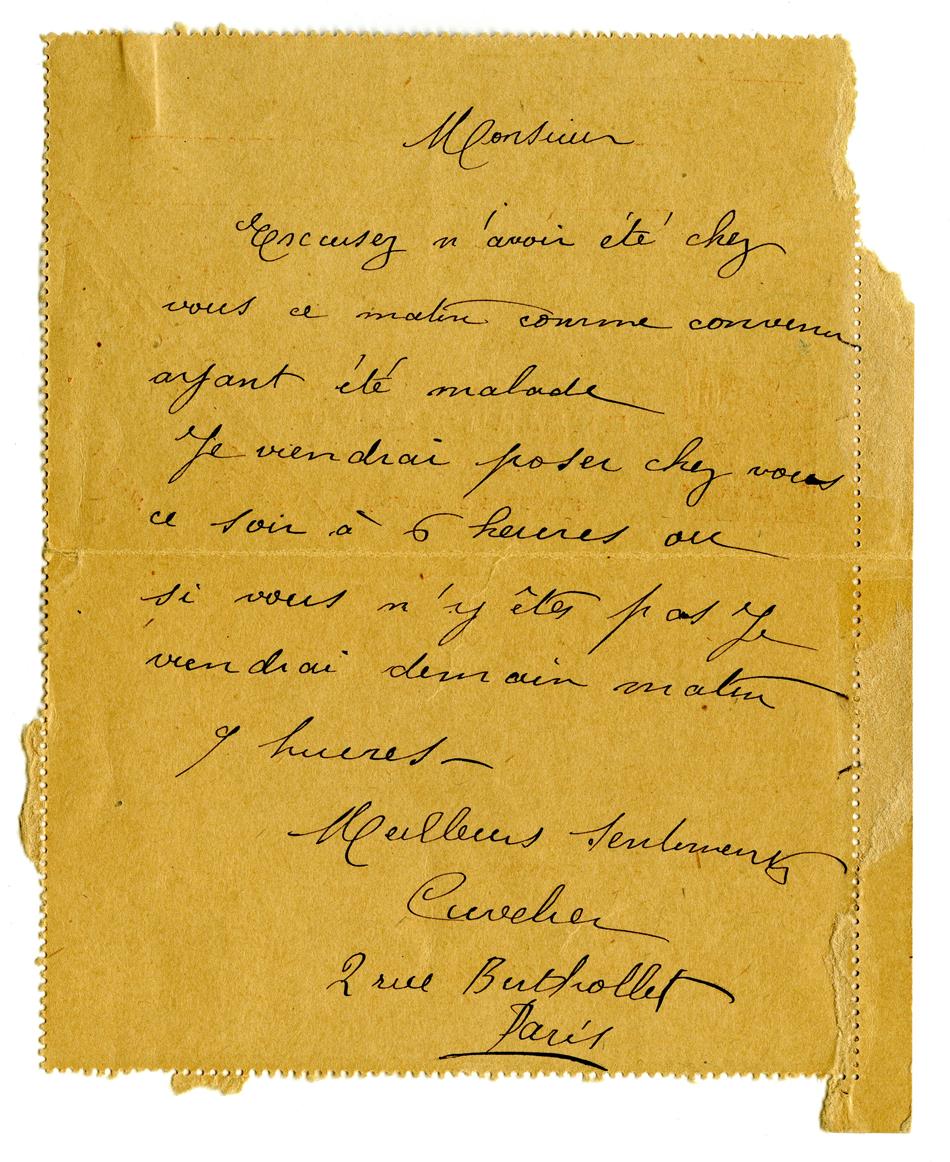 Monsieur
Excusez n'avoir été chez
vous ce matin comme convenu
ayant été malade
Je viendrai poser chez vous
ce soir à 6 heures ou
si vous n'y êtes pas Je
viendrai demain matin
9 hueres —
Meilleurs sentiments
Cuvelier
2 rue Berthollet
Paris